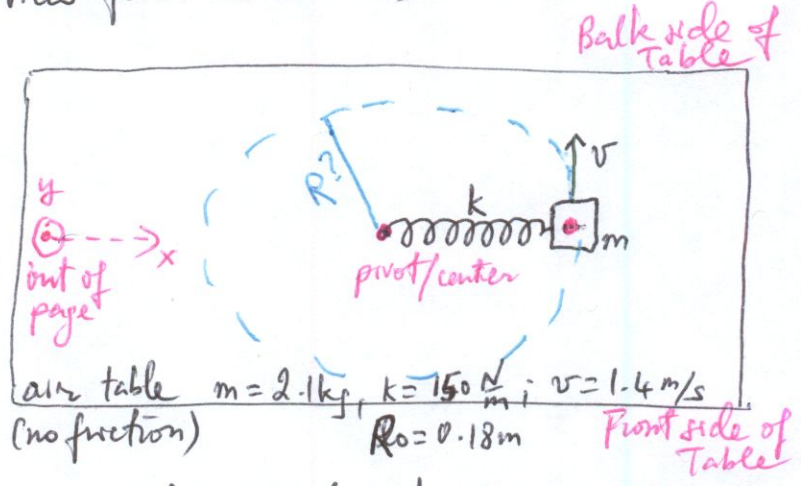 Balk side of
Table
v
k
R?
m
y
x
out of
page
pivot/center
air table m = 2.1 kg, k = 150 N/m; v = 1.4 m/s
(no friction) R0 = 0.18m
Front side of
Table